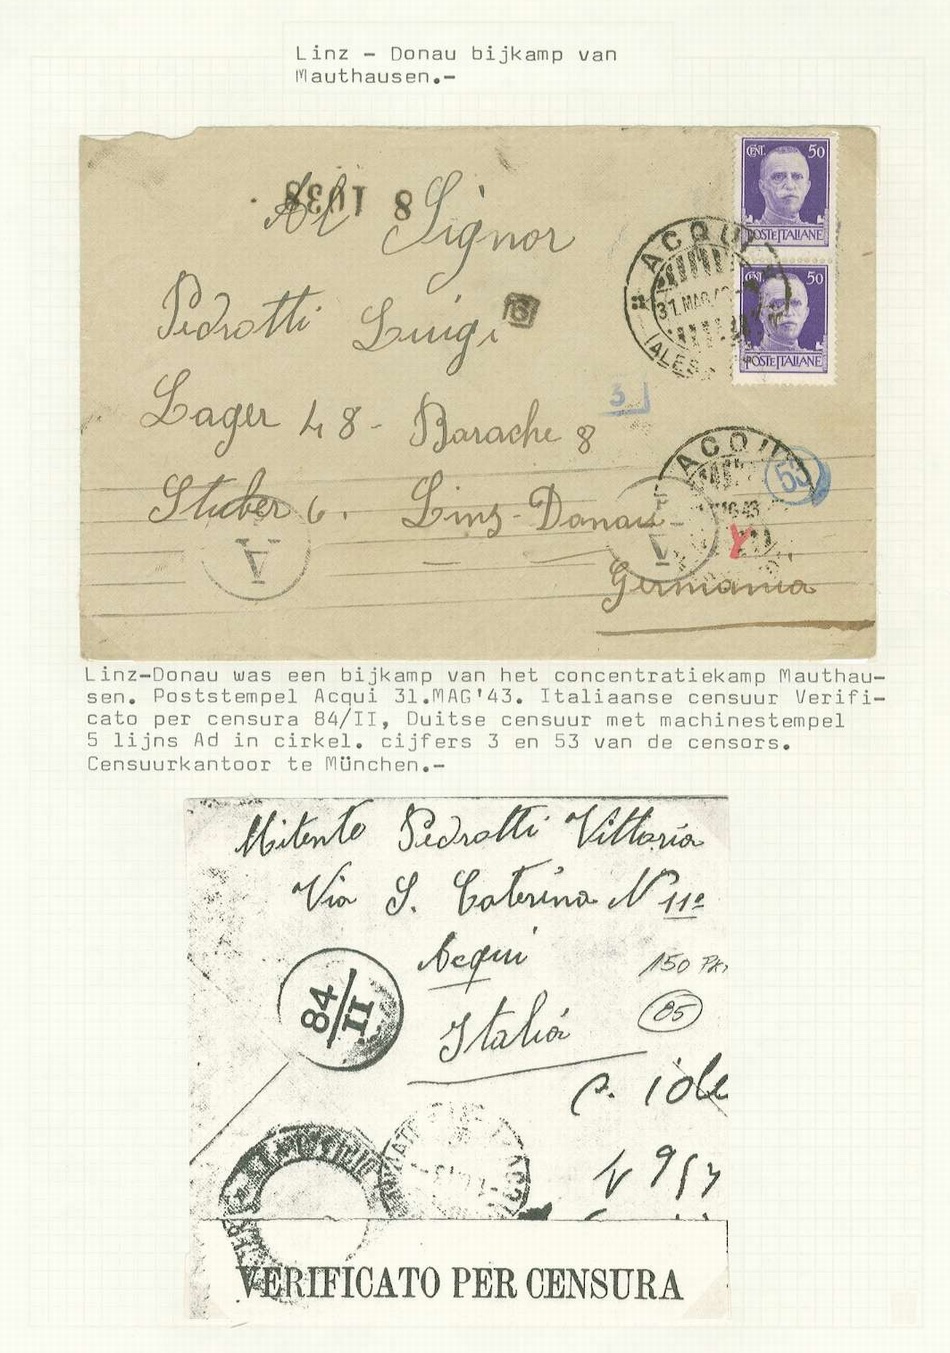 Linz - Donau bijkamp van
Mauthausen.-
CENT. 50
POSTE ITALIANE
8 1038
Al Signor
ACQUI
31.MAG.43
ALES
CENT. 50
POSTE ITALIANE
Pedrotti Luigi
6
3
Lager 48 - Barache 8
ACQUI
53
Stuber 6. Linz-Donau
A
Germania
Linz-Donau was een bijkamp van het concentratiekamp Mauthau-
sen. Poststempel Acqui 31.MAG'43. Italiaanse censuur Verifi-
cato per censura 84/II, Duitse censuur met machinestempel
5 lijns Ad in cirkel. cijfers 3 en 53 van de censors.
Censuurkantoor te München.-
Mitente Pedrotti Vittoria
Via S. Caterina N 11º
Acqui
150
84/II
85
Italia
VERIFICATO PER CENSURA